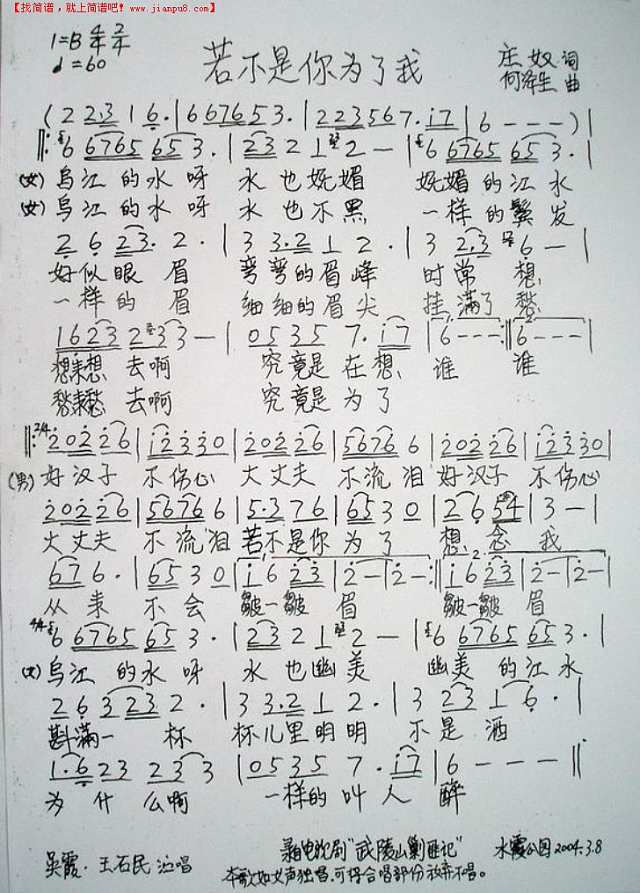 【找简谱，就上简谱吧！www.jianpu8.com】
1=B 4/4 2/4
♩=60
若不是你为了我
庄奴 词
何泽生 曲
(2 2 2·3 1 6·|6 6 7 6 5 3·|2 2 3 5 6 7·i7|6 - - -)|
6 6765 65 3·|23 2 1 2 -|6 6765 65 3·|
(女)乌江的水呀 水也妩媚 妩媚的江水
(女)乌江的水呀 水也不黑 一样的鬓发
2 6 23· 2·|3 3·2 1 2·|3 2·3 6 -|
好似眼眉 弯弯的眉峰 时常想
一样的眉 细细的眉尖 挂满了愁
1623 2 33 -|0535 7·i7|6 - - -:‖6 - - -|
想来想去啊 究竟是在想谁 谁
愁来愁去啊 究竟是为了
2/4 20226|i2330|20226|56766|20226|i2330|
(男)好汉子 不伤心 大丈夫 不流泪 好汉子 不伤心
20226|56766|5·376|65 3 0|26 54|3 -|
大丈夫 不流泪 若不是你为了 想念我
676·|65 3 0|i 6 23|2 -|2 -:‖i 6 23|2 -|2 -|
从来不会 皱一皱眉 皱一皱眉
4/4 6 6765 65 3·|23 2 1 2 -|6 6765 65 3·|
(女)乌江的水呀 水也幽美 幽美的江水
2 6 323 2·|3 3·2 1 2·|3 23 1 6·|
斟满一杯 杯儿里明明 不是酒
1·623 23 3|0535 7·i7|6 - - -‖
为什么啊 一样的叫人醉
吴霞·王石民 演唱
录自电视剧"武陵山剿匪记"
水霞公园2004.3.8
本歌如女声独唱，可将合唱部份放弃不唱。